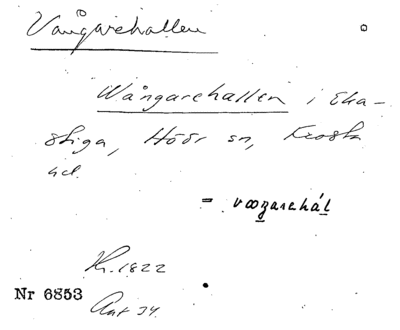 Vångarehallen
Wångarehallen i Eka-
stiga, Höör sn, Frosta
hd.
= vœŋarehál
Kr. 1822
Nr 6853
Ant 34.